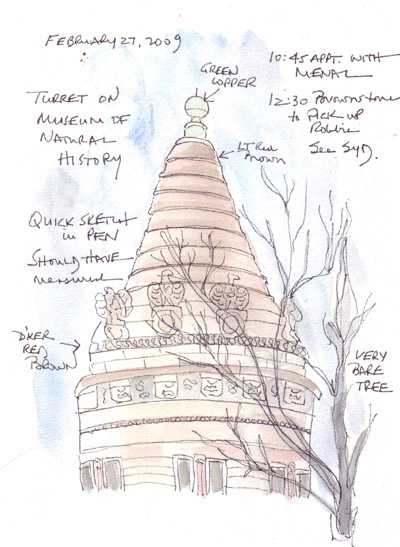 FEBRUARY 27, 2009
10:45 APPT. WITH
MENAL
12:30
to PICK UP
Robbie
See SYD.
GREEN
COPPER
TURRET ON
MUSEUM OF
NATURAL
HISTORY
LT RED
Brown
QUICK SKETCH
in PEN
SHOULD HAVE
measured
D'KER
RED
BROWN
VERY
BARE
TREE